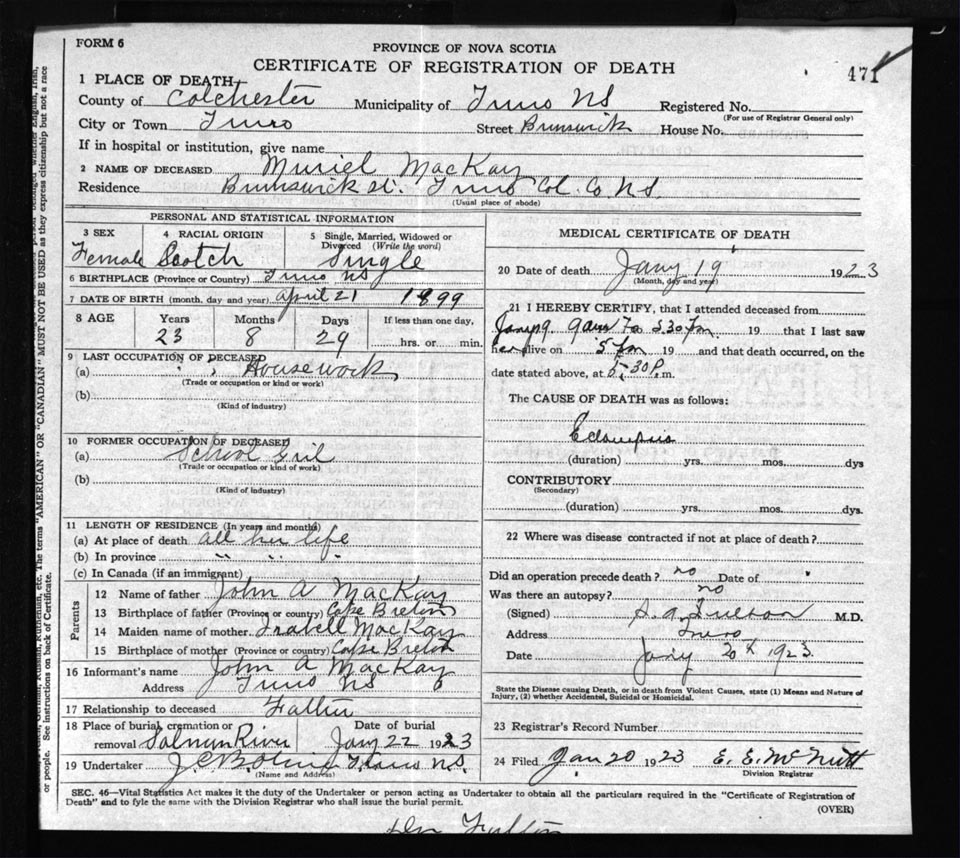 FORM 6
PROVINCE OF NOVA SCOTIA
CERTIFICATE OF REGISTRATION OF DEATH
471
1 PLACE OF DEATH
County of Colchester Municipality of Truro NS Registered No.
(For use of Registrar General only)
City or Town Truro Street Brunswick House No.
If in hospital or institution, give name
2 NAME OF DECEASED Muriel MacKay
Residence Brunswick St. Truro Col. Co NS
(Usual place of abode)
PERSONAL AND STATISTICAL INFORMATION
3 SEX 4 RACIAL ORIGIN 5 Single, Married, Widowed or Divorced (Write the word)
Female Scotch Single
6 BIRTHPLACE (Province or Country) Truro NS
7 DATE OF BIRTH (month, day and year) April 21 1899
8 AGE Years Months Days If less than one day,
23 8 29 hrs. or min.
9 LAST OCCUPATION OF DECEASED
(a) Housework
(Trade or occupation or kind or work)
(b)
(Kind of industry)
10 FORMER OCCUPATION OF DECEASED
(a) School Girl
(Trade or occupation or kind of work)
(b)
(Kind of industry)
11 LENGTH OF RESIDENCE (In years and months)
(a) At place of death all her life
(b) In province " " "
(c) In Canada (if an immigrant)
Parents
12 Name of father John A MacKay
13 Birthplace of father (Province or country) Cape Breton
14 Maiden name of mother Isabell MacKay
15 Birthplace of mother (Province or country) Cape Breton
16 Informant's name John A MacKay
Address Truro NS
17 Relationship to deceased Father
18 Place of burial, cremation or Date of burial
removal Salmon River Jany 22 1923
19 Undertaker Truro N.S.
(Name and Address)
MEDICAL CERTIFICATE OF DEATH
20 Date of death Jany 19 1923
(Month, day and year)
21 I HEREBY CERTIFY, that I attended deceased from
Jany 19 9 am To 5.30 Pm 19 that I last saw
her alive on 5 Pm 19 and that death occurred, on the
date stated above, at 5.30 P.m.
The CAUSE OF DEATH was as follows:
Eclampsia
(duration) yrs. mos. dys
CONTRIBUTORY
(Secondary)
(duration) yrs. mos. dys.
22 Where was disease contracted if not at place of death?
Did an operation precede death? no Date of
Was there an autopsy? no
(Signed) Fulton M.D.
Address Truro
Date Jany 20th 1923
State the Disease causing Death, or in death from Violent Causes, state (1) Means and Nature of
Injury, (2) whether Accidental, Suicidal or Homicidal.
23 Registrar's Record Number
24 Filed Jan 20 1923 E. E. McNutt
Division Registrar
SEC. 46—Vital Statistics Act makes it the duty of the Undertaker or person acting as Undertaker to obtain all the particulars required in the "Certificate of Registration of
Death" and to fyle the same with the Division Registrar who shall issue the burial permit.
(OVER)
Dr Fulton
The terms "AMERICAN" OR "CANADIAN" MUST NOT BE USED as they express citizenship but not a race
or people. See instructions on back of Certificate.